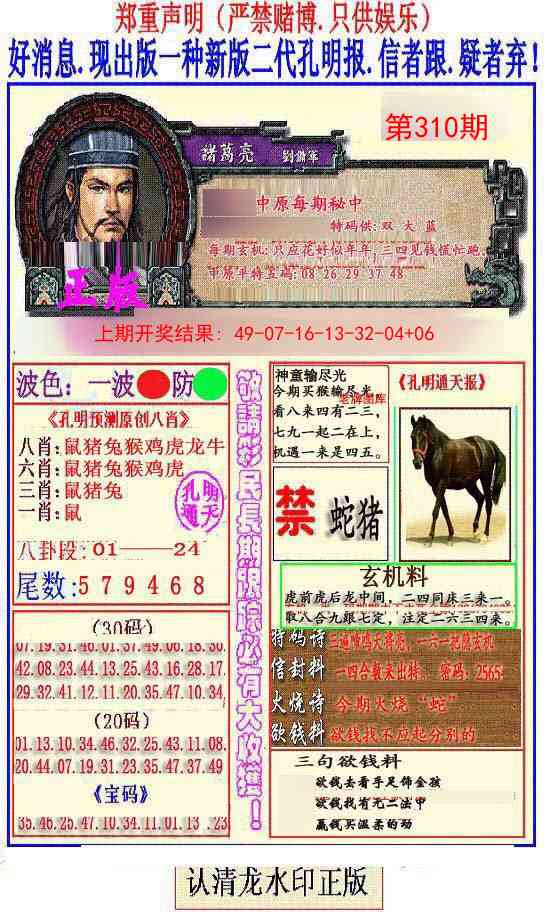 郑重声明（严禁赌博.只供娱乐）
好消息.现出版一种新版二代孔明报.信者跟.疑者弃!
第310期
諸葛亮 劉備軍
中原每期秘中
特码供:双 大 蓝
每期玄机:只应花好似年年,三四见钱慌忙跑.
中第半特五码:08 26 29 37 48
正版
上期开奖结果: 49-07-16-13-32-04+06
波色：一波 防
《孔明预测原创八肖》
八肖:鼠猪兔猴鸡虎龙牛
六肖:鼠猪兔猴鸡虎
三肖:鼠猪兔
一肖:鼠
孔明通天
八卦段:01——24
尾数:579468
(30码)
07.19.31.46.01.37.49.06.18.30.
42.08.23.44.13.25.43.16.28.17.
29.32.41.12.11.20.35.47.10.34.
(20码)
01.13.10.34.46.32.25.43.11.08.
20.44.07.19.31.23.35.47.37.49
《宝码》
35.46.25.47.10.34.11.01.13 .23
敬請彩民長期跟踪必有大收獲！
神童输尽光
今期买猴输尽光
老牌图库
看八来四有二三,
七九一起二在上,
机遇一来是四五。
《孔明通天报》
禁 蛇猪
玄机料
虎前虎后龙中间，二四同床三来一。
取八合九跟七定，注定二六三四来。
特码诗 一六一起跳玄机
信封料 一四合数来出特。 密码：2565!
火烧诗 今期火烧“蛇”
欲钱料 欲钱找不应起分别的
三句欲钱料
欲钱去看手足饰金孩
欲钱我有无二法中
赢钱买温柔的动
认清龙水印正版